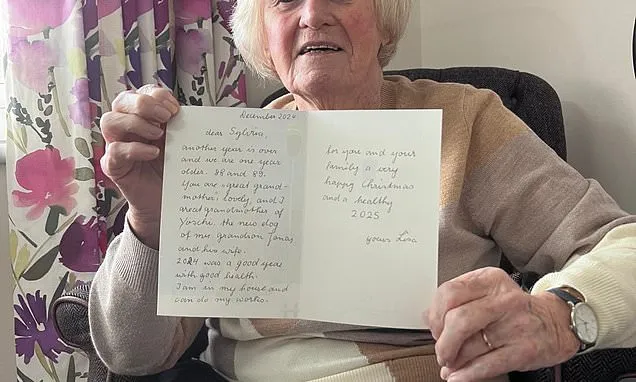 December 2024
dear Sylvia,
another year is over
and we are one year
older. 88 and 89.
You are great grand-
mother, lovely, and I
great grandmother of
Yoschi, the new dog
of my grandson Jonas
and his wife.
2024 was a good year
with good health.
I am in my house and
can do my works.
for you and your
family a very
happy Christmas
and a healthy
2025
yours Lisa